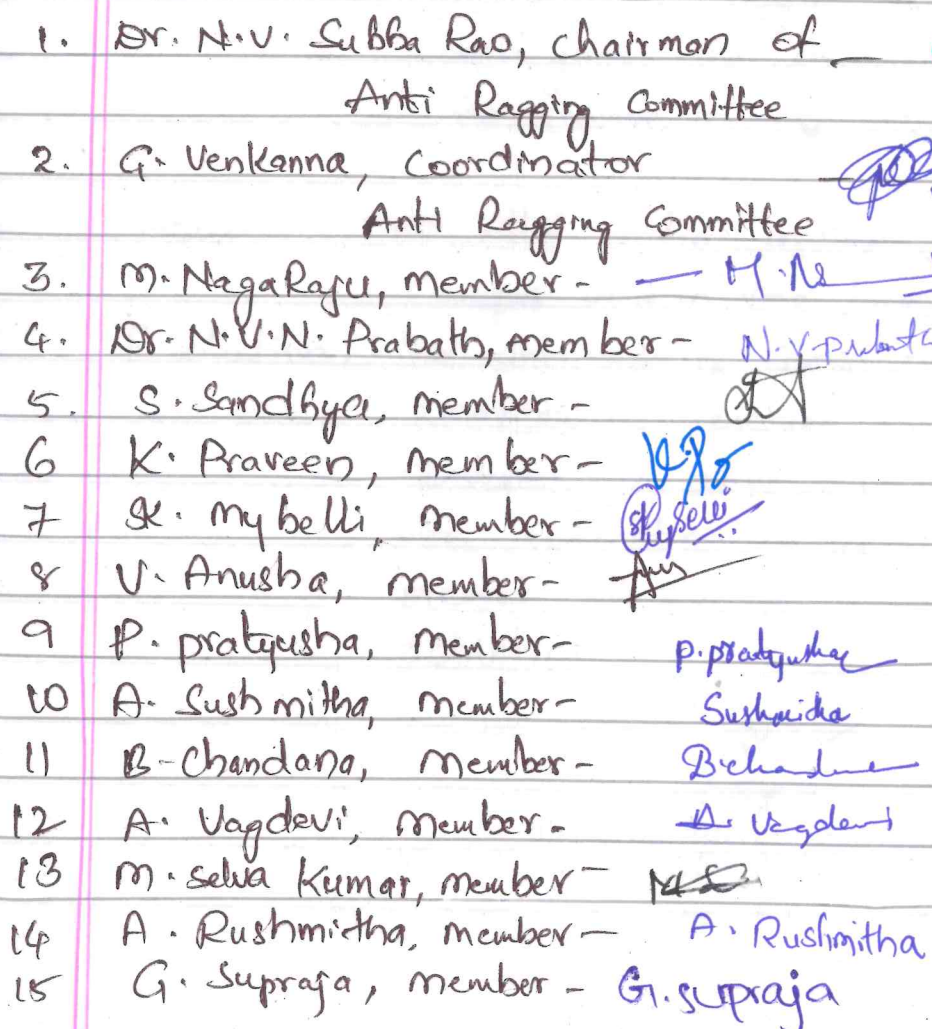 1. Dr. N.V. Subba Rao, Chairman of
Anti Ragging Committee
2. G. Venkanna, Coordinator
Anti Ragging Committee
3. M. NagaRaju, member - M.N
4. Dr. N.V.N. Prabath, member -
5. S. Sandhya, member -
6 K. Praveen, member -
7 SK. mybelli, member -
8 V. Anusha, member -
9 P. pratyusha, member - P. pratyusha
10 A. Sushmitha, member - Sushmitha
11 B-Chandana, member -
12 A. Vagdevi, member - A. Vagdevi
13 M. selva Kumar, member -
14 A. Rushmitha, member - A. Rushmitha
15 G. Supraja, member - G. supraja